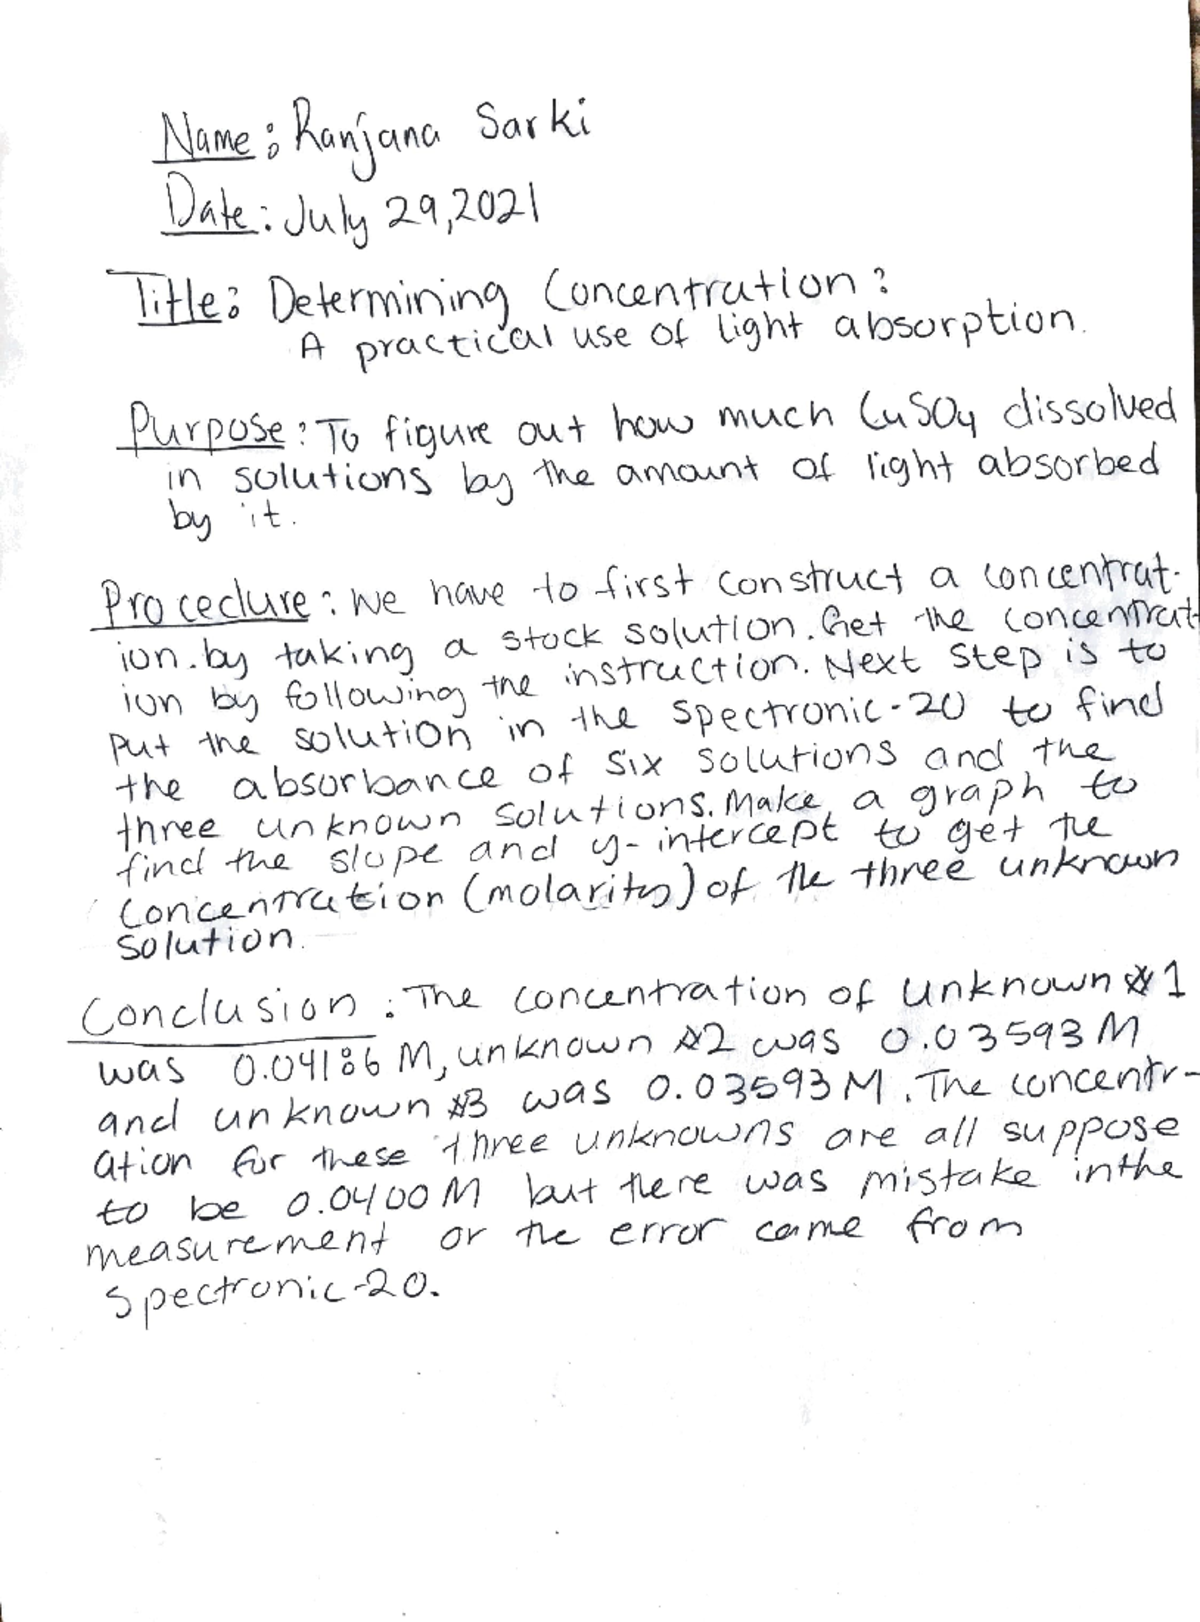 Name: Ranjana Sarki
Date: July 29, 2021
Title: Determining Concentration:
A practical use of light absorption.
Purpose: To figure out how much CuSO4 dissolved
in solutions by the amount of light absorbed
by it.
Procedure: We have to first construct a concentrat-
ion. by taking a stock solution. Get the concentrat
ion by following the instruction. Next step is to
put the solution in the spectronic-20 to find
the absorbance of six solutions and the
three unknown solutions. Make a graph to
find the slope and y-intercept to get the
concentration (molarity) of the three unknown
solution.
Conclusion: The concentration of unknown #1
was 0.04186 M, unknown #2 was 0.03593 M
and unknown #3 was 0.03593 M. The concentr-
ation for these three unknowns are all suppose
to be 0.0400 M but there was mistake in the
measurement or the error came from
Spectronic-20.